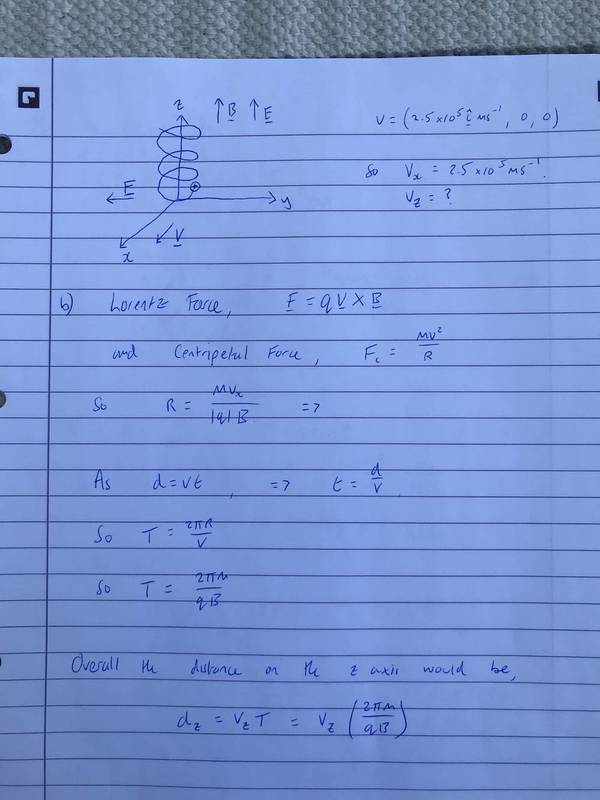 z ↑B ↑E V = (2.5×10⁵ î ms⁻¹, 0, 0)
So Vₓ = 2.5×10⁵ ms⁻¹.
F V_z = ?
y
V
x
b) Lorentz Force, F = qV×B
and Centripetal Force, F_c = mv²/R
So R = mVₓ/|q|B =>
As d = vt, => t = d/v
So T = 2πR/V
So T = 2πm/qB
Overall the distance on the z axis would be,
d_z = V_z T = V_z (2πm/qB)